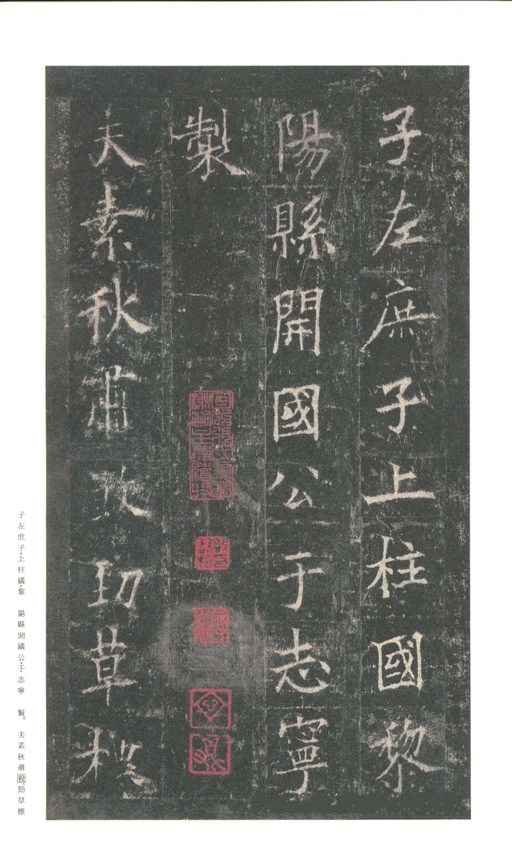 子左庶子上柱國黎
陽縣開國公于志寧
製
夫素秋肅
勁草標
子左庶子·上柱國·黎　陽縣開國公·于志寧　製。　夫素秋肅　勁草標